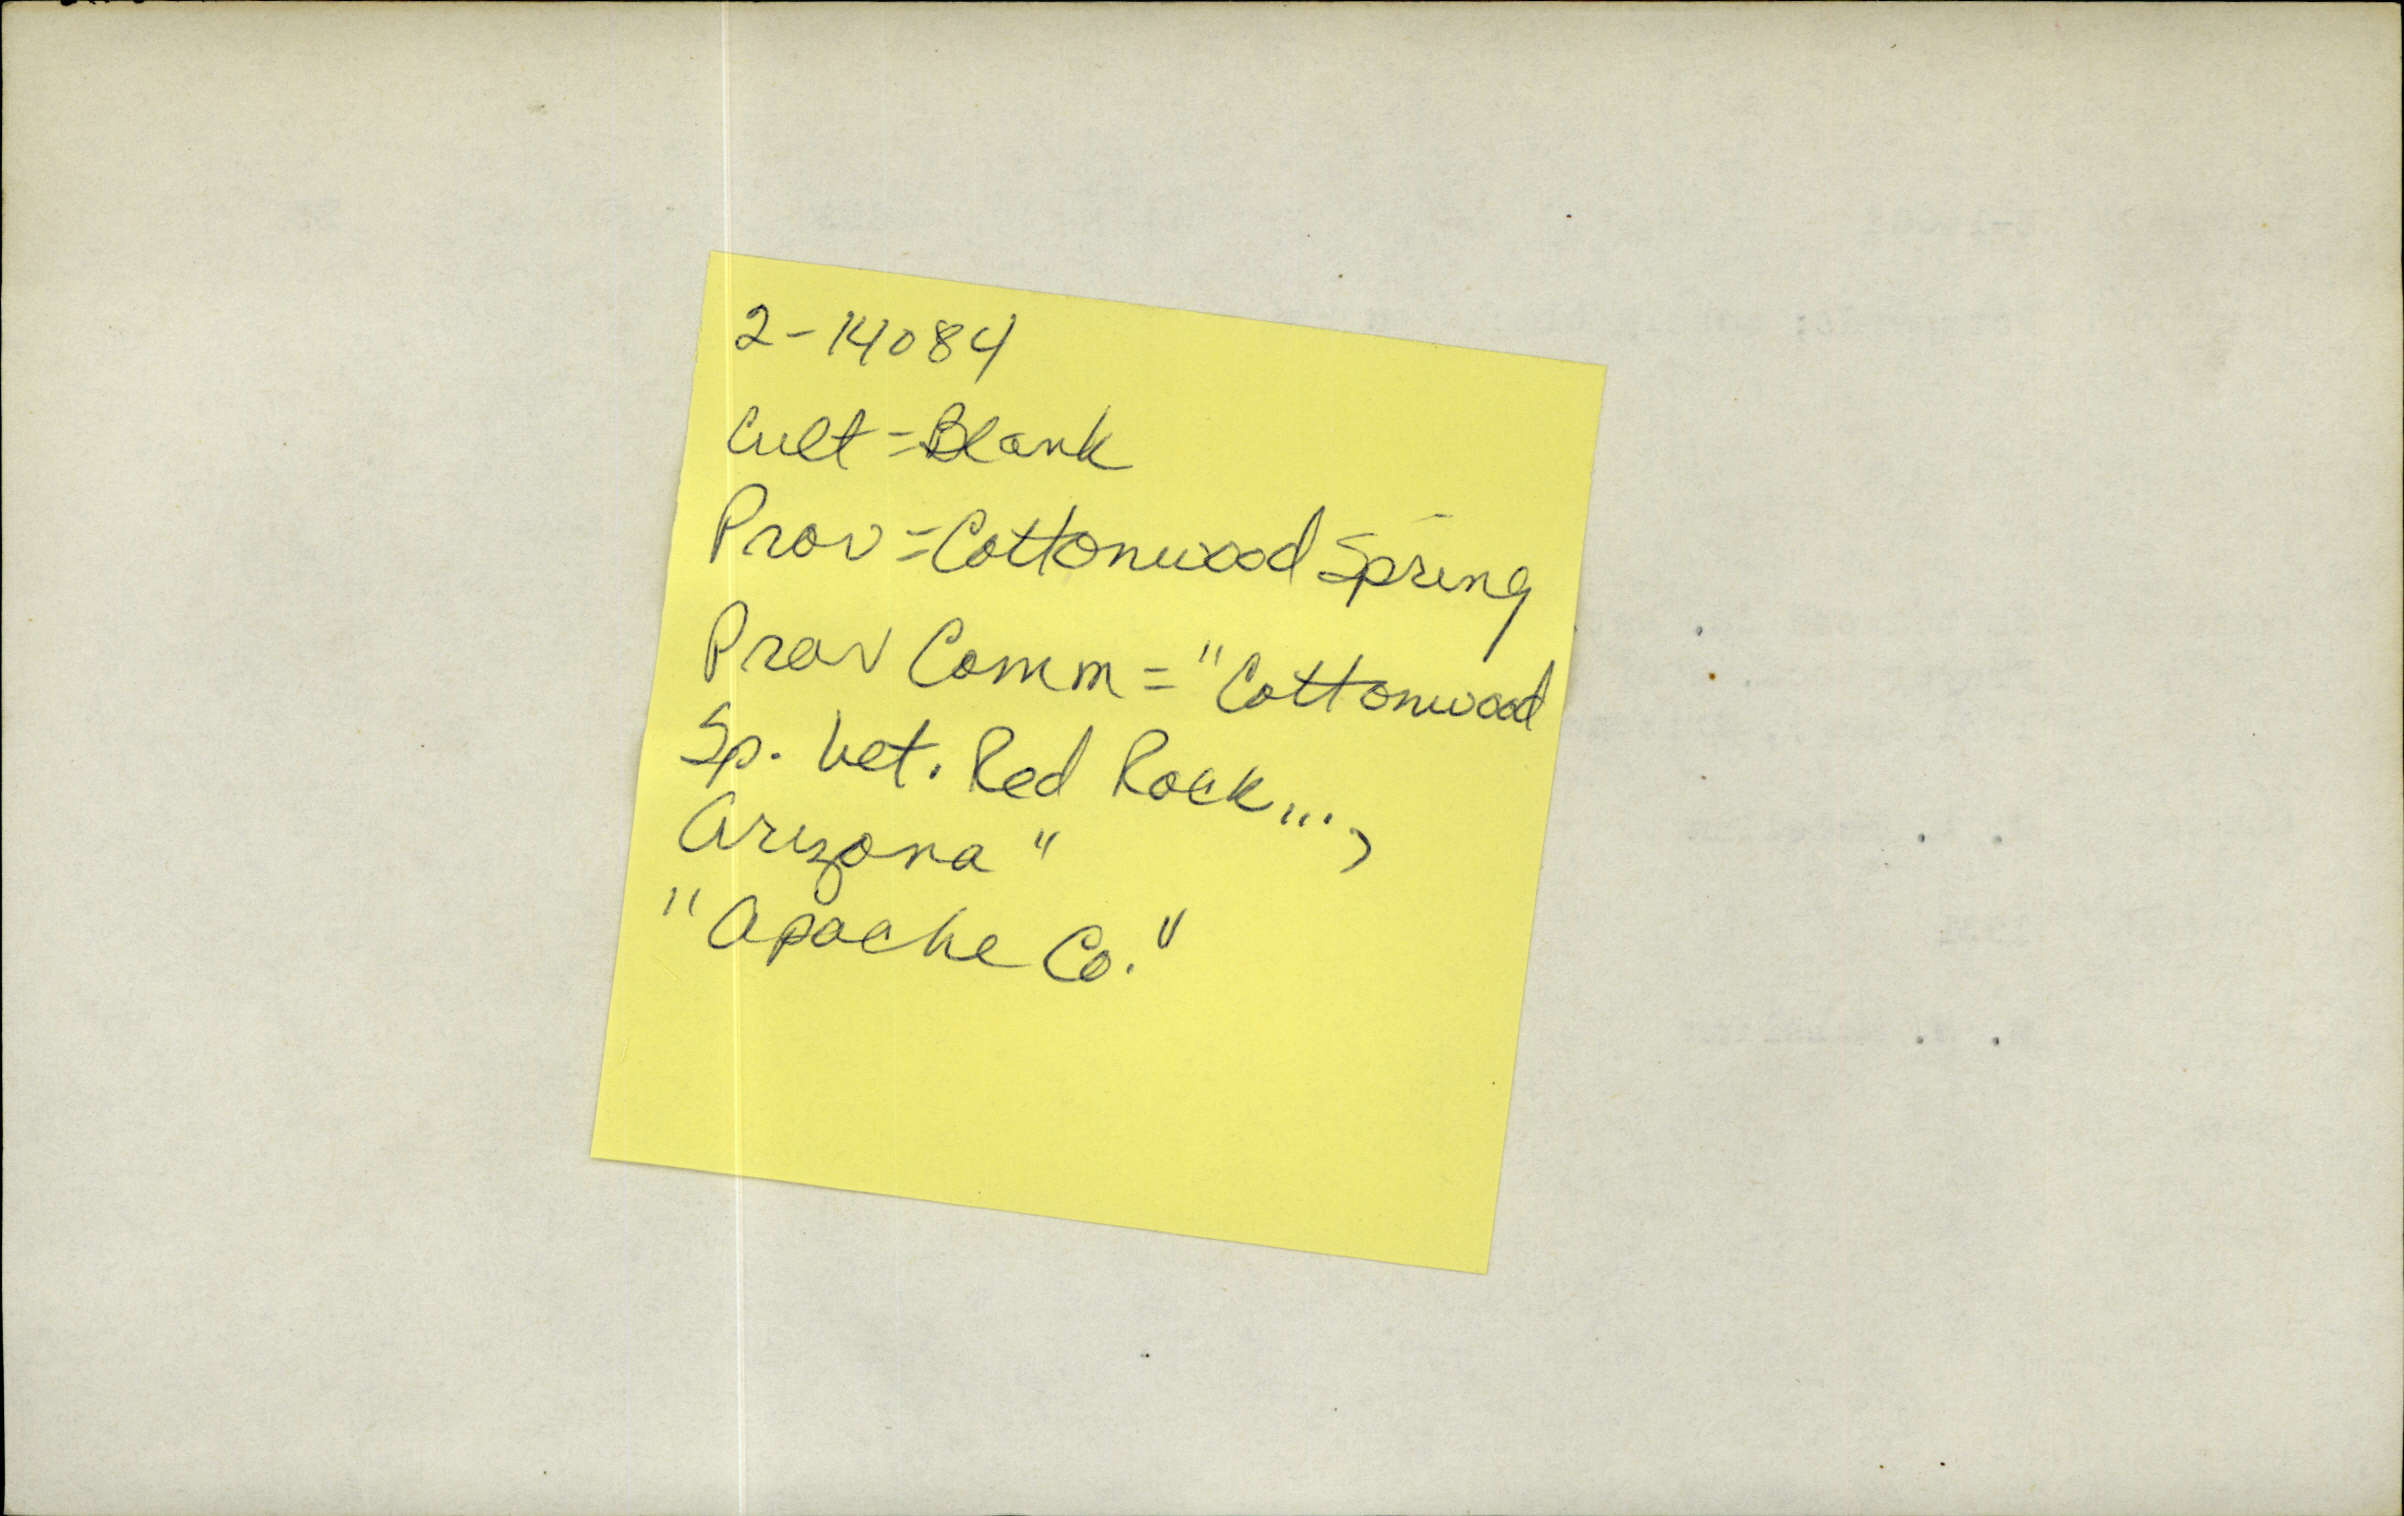 2-14084
Cult=Blank
Prov=Cottonwood Spring
Prov Comm="Cottonwood
Sp. bet. Red Rock...,
Arizona"
"Apache Co."